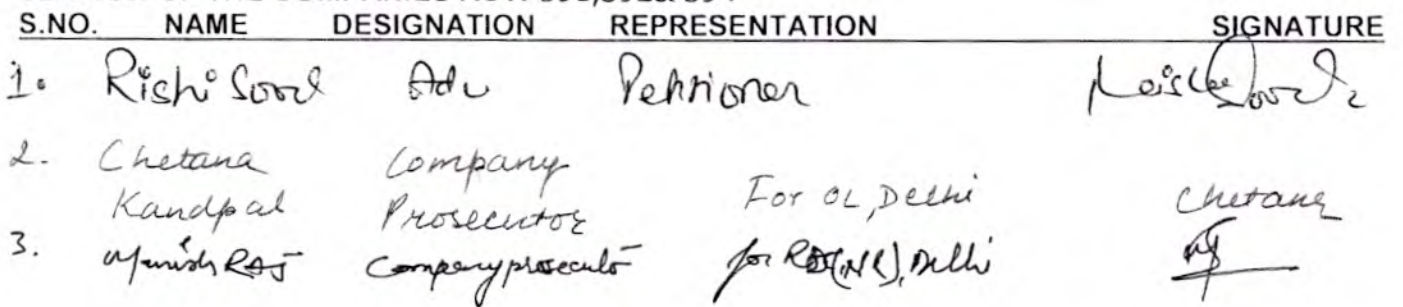 S.NO. NAME DESIGNATION REPRESENTATION SIGNATURE
1. Rishi Sood Adv Petitioner
2. Chetana Company
Kandpal Prosecutor For OL, Delhi Chetana
3. Manish RAJ Company prosecutor for RD(NR), Delhi